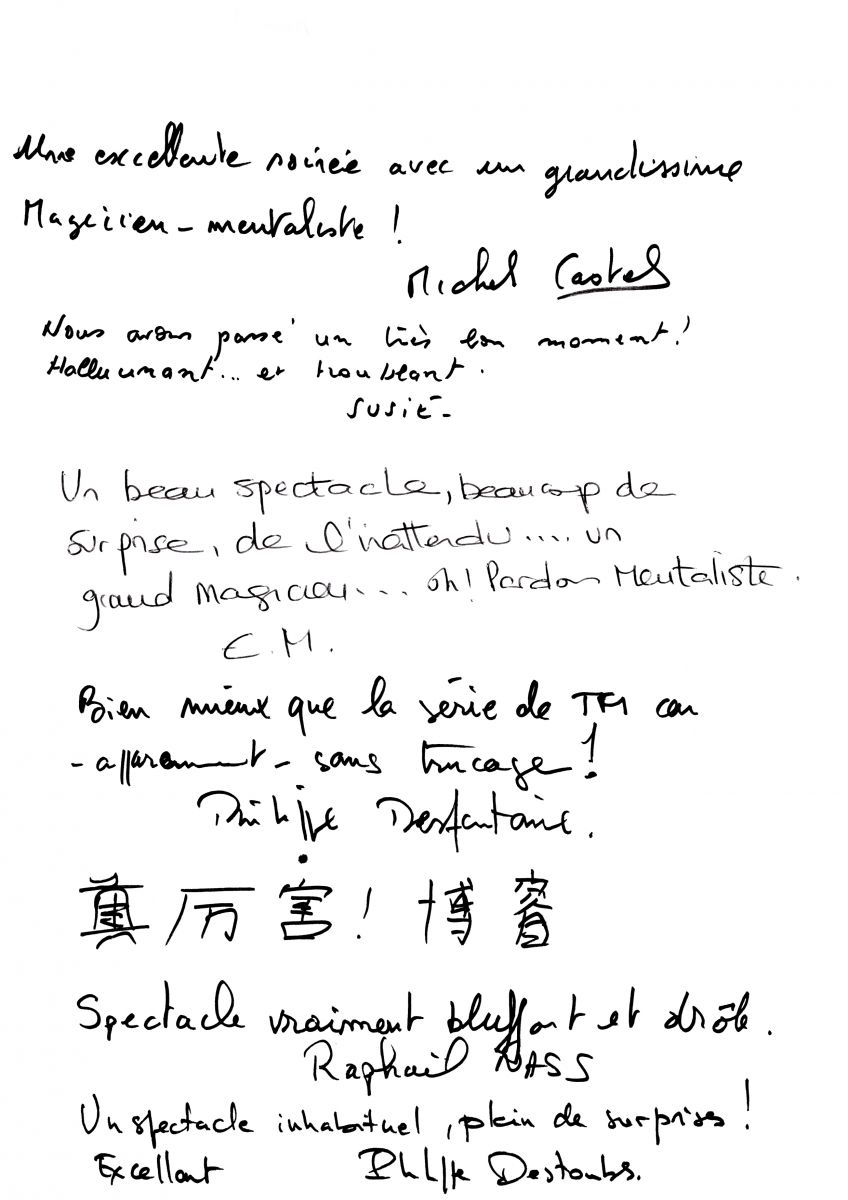 Une excellente soirée avec un grandissime
Magicien - mentaliste !
Michel Castel
Nous avons passé un très bon moment !
Hallucinant... et troublant.
SUSIE -
Un beau spectacle, beaucoup de
surprise, de l'inattendu .... un
grand magicien.... oh! Pardon Mentaliste.
E.M.
Bien mieux que la série de TF1 car
- apparemment - sans trucage !
Philippe Desfontaine.
真厉害! 博
Spectacle vraiment bluffant et drôle.
Raphaël NASS
Un spectacle inhabituel, plein de surprises !
Excellant Philippe